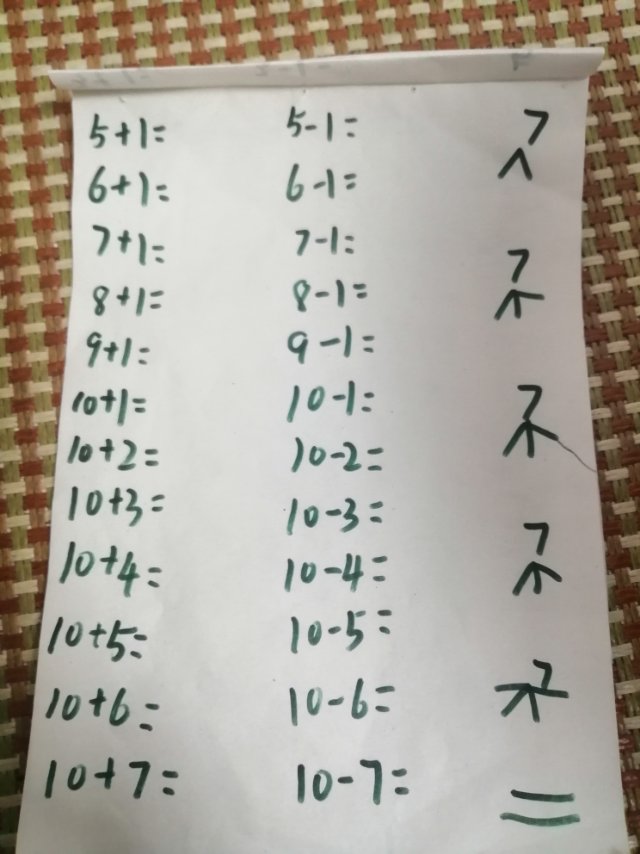 5+1= 5-1= 7
6+1= 6-1=
7+1= 7-1= 7
8+1= 8-1=
9+1= 9-1=
10+1= 10-1= 7
10+2= 10-2=
10+3= 10-3=
10+4= 10-4= 7
10+5= 10-5=
10+6= 10-6= 7
10+7= 10-7=